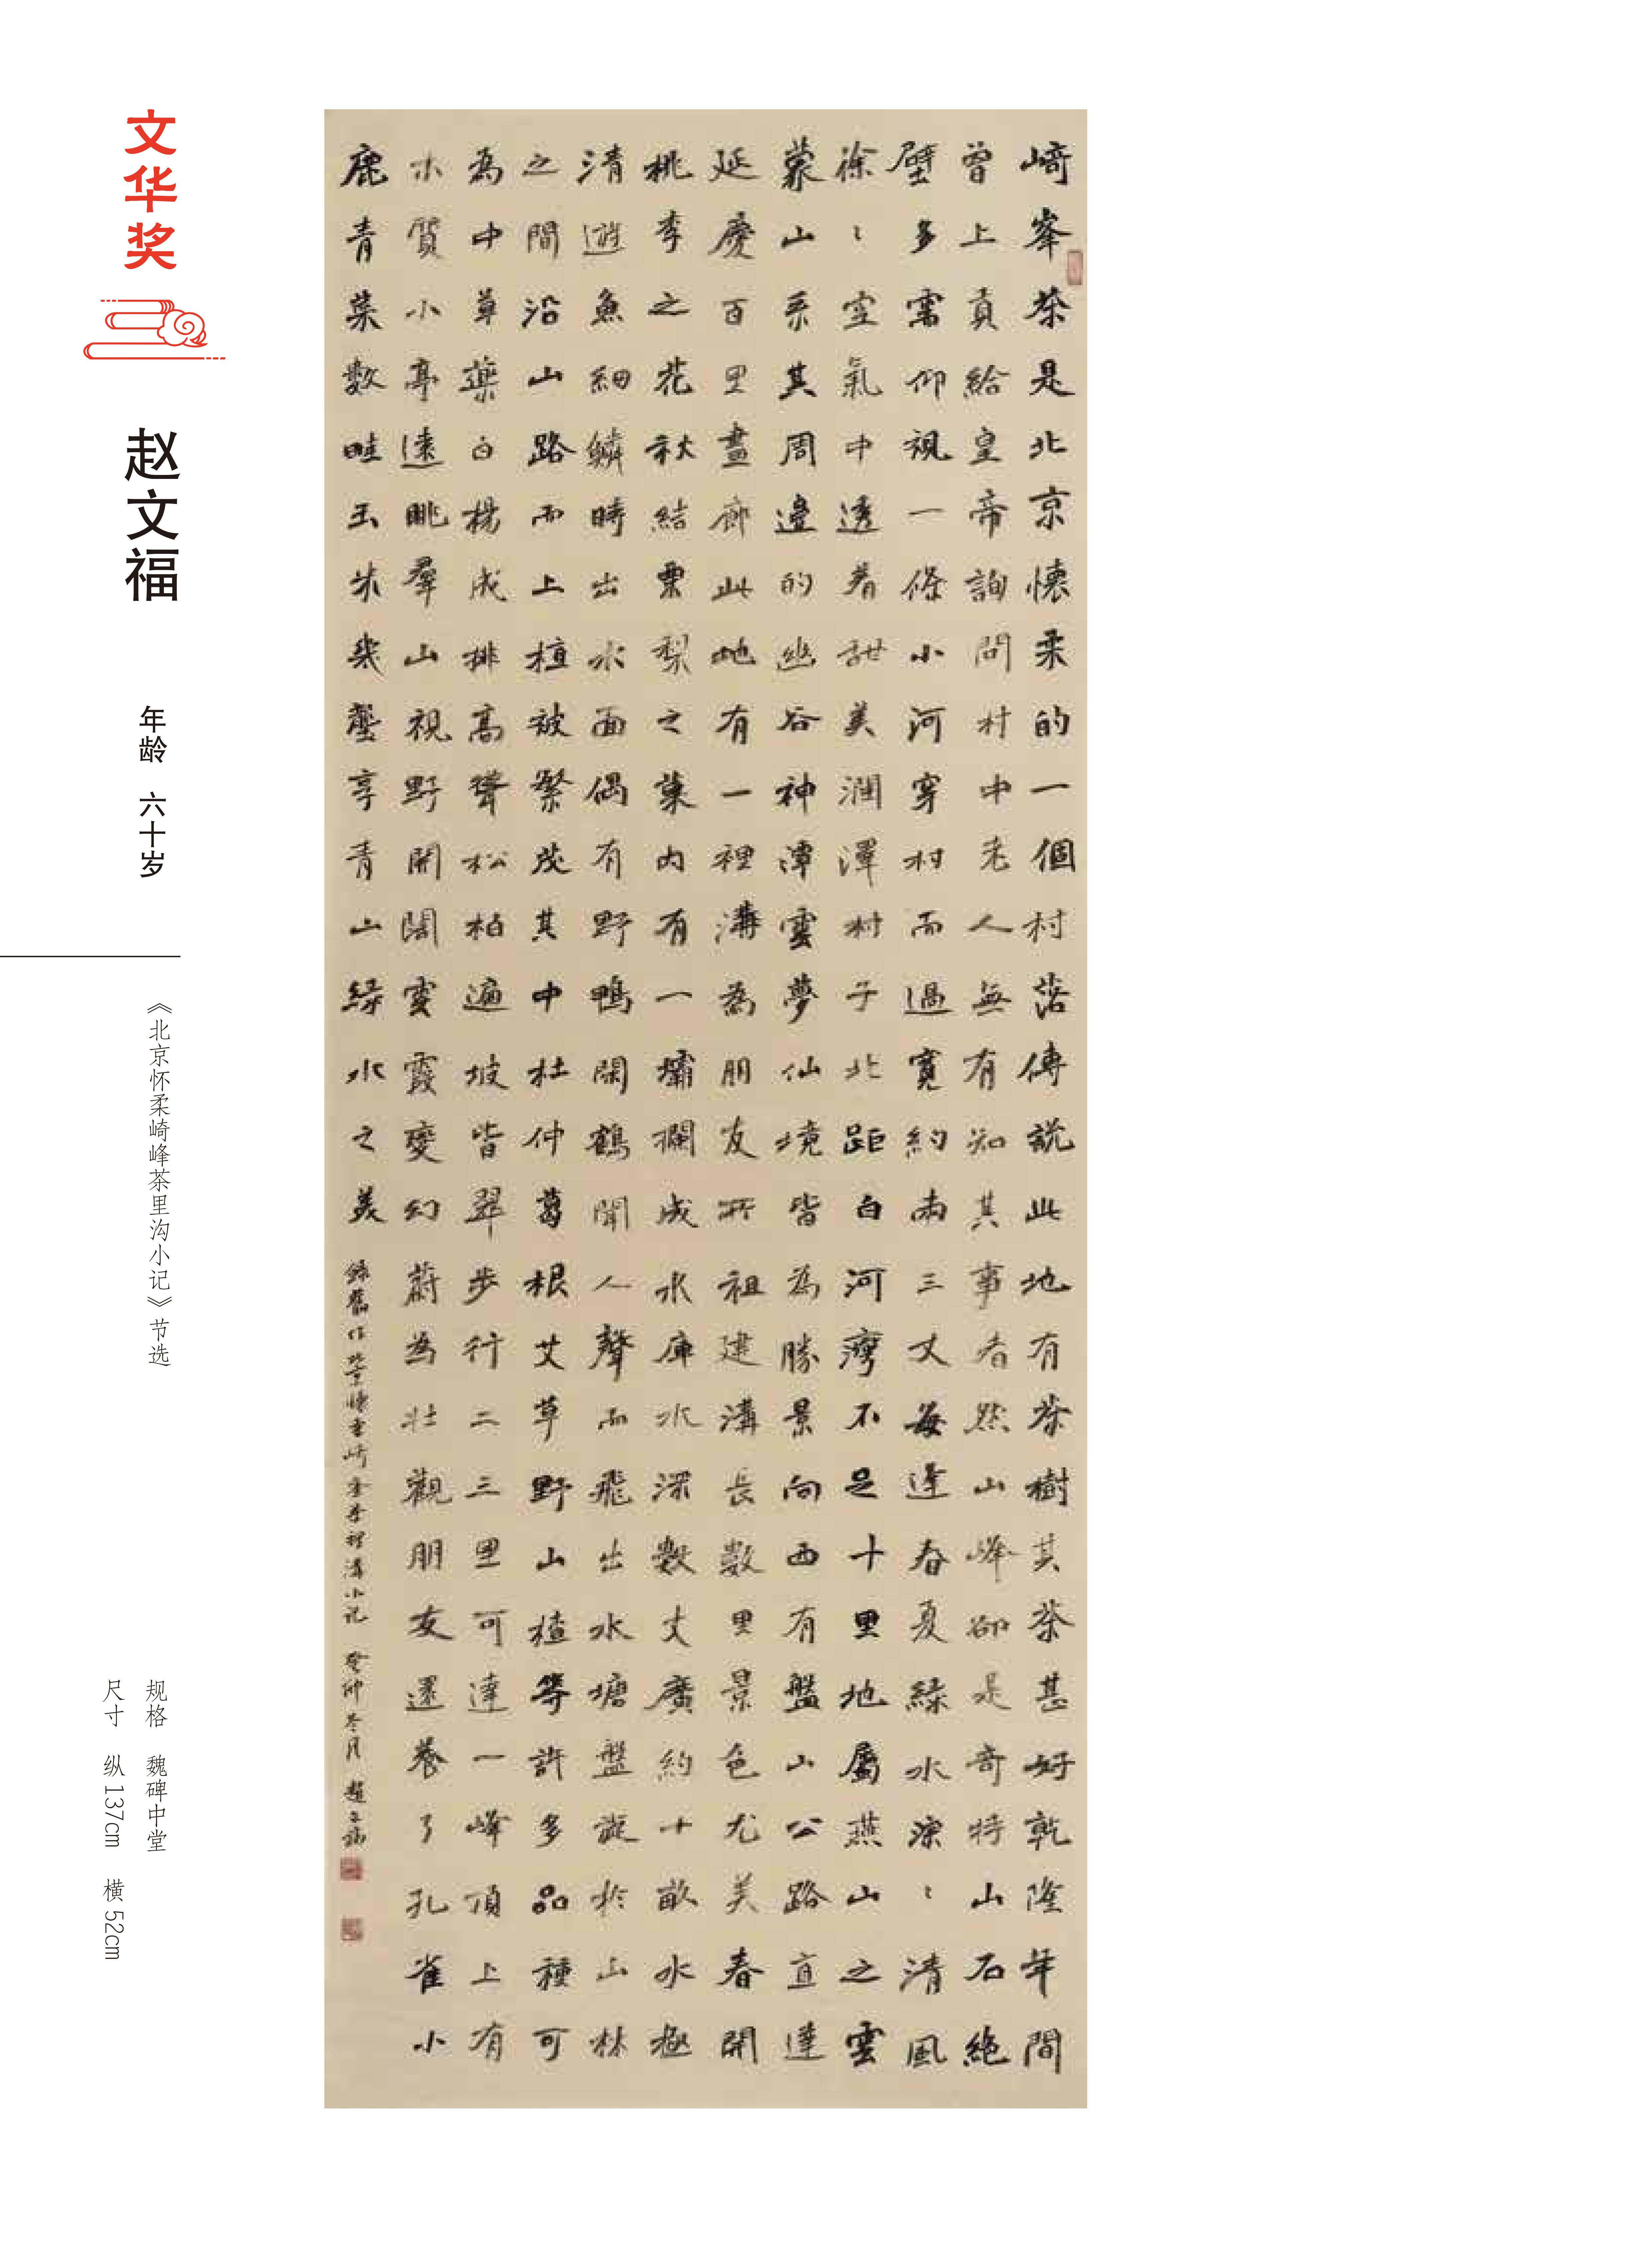 文华奖
赵文福
年龄 六十岁
《北京怀柔崎峰茶里沟小记》节选
规格 魏碑中堂
尺寸 纵137cm 横52cm
崎峯茶是北京懷柔的一個村落傳説此地有茶樹其茶甚好乾隆年間
曾上貢給皇帝詢問村中老人無有知其事者然山峰卻是奇特山石絶
壁多需仰視一條小河穿村而過寬約兩三丈每逢春夏綠水深〻清風
徐〻空氣中透着甜美潤澤村子北距白河灣不足十里地屬燕山之雲
蒙山系其周邊的幽谷神潭雲夢仙境皆為勝景向西有盤山公路直達
延慶百里畫廊此地有一裡溝為朋友所祖建溝長數里景色尤美春開
桃李之花秋結栗梨之菓内有一壩攔成水庫水深數丈廣約十畝水極
清遊魚細鱗時出水面偶有野鴨閑鶴聞人聲而飛出水塘盤旋於山林
之間沿山路而上植被繁茂其中杜仲葛根艾草野山楂等許多品種可
為中草藥白楊成排高聳松柏遍坡皆翠步行二三里可達一峰頂上有
木質小亭遠眺羣山視野開闊雲霞變幻蔚為壯觀朋友還養了孔雀小
鹿青菜數畦玉米幾壟享青山綠水之美
錄舊作北京懷柔崎峯茶裡溝小记 癸卯冬月 趙文福